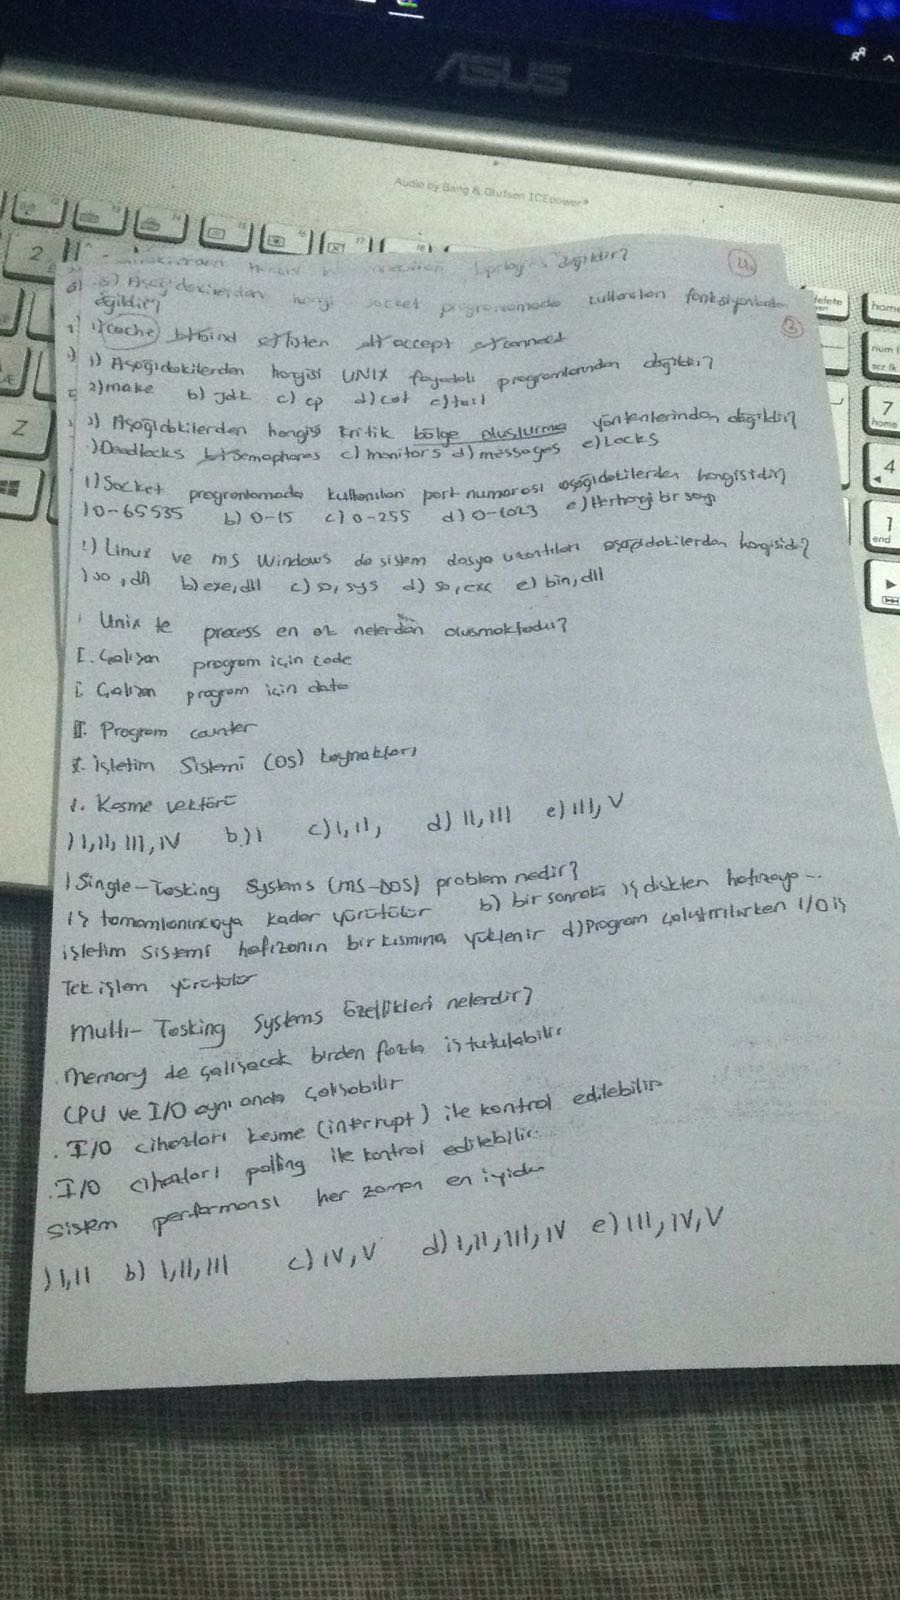 ASUS
Audio by Bang & Olufsen ICEpower®
değildir?
4.
Aşağıdakilerden hangisi socket programlamada kullanılan fonksiyonlardan
değildir?
3
cache b) bind c) listen d) accept e) connect
1) Aşağıdakilerden hangisi UNIX faydalı programlarından değildir?
2) make b) jdk c) cp d) cat e) tail
2) Aşağıdakilerden hangisi kritik bölge oluşturma yöntemlerinden değildir?
) Deadlocks b) Semaphores c) monitors d) messages e) Locks
1) Socket programlamada kullanılan port numarası aşağıdakilerden hangisidir?
) 0-65535 b) 0-15 c) 0-255 d) 0-1023 e) Herhangi bir sayı
!) Linux ve ms Windows da sistem dosya uzantıları aşağıdakilerden hangisidir?
) so, dll b) exe, dll c) so, sys d) so, exe e) bin, dll
Unix te process en az nelerden oluşmaktadır?
I. Çalışan program için code
I. Çalışan program için data
II. Program counter
I. İşletim Sistemi (OS) kaynakları
1. Kesme vektörü
) I, II, III, IV b) I c) I, II, d) II, III e) III, V
) Single-Tasking Systems (MS-DOS) problem nedir?
iş tamamlanıncaya kadar yürütülür b) bir sonraki iş diskten hafızaya...
işletim sistemi hafızanın bir kısmına yüklenir d) Program çalıştırılırken I/O iş
Tek işlem yürütülür
Multi-Tasking Systems özellikleri nelerdir?
.memory de çalışacak birden fazla iş tutulabilir
CPU ve I/O aynı anda çalışabilir
. I/O cihazları kesme (interrupt) ile kontrol edilebilir
. I/O cihazları polling ile kontrol edilebilir.
Sistem performansı her zaman en iyidir
) I, II b) I, II, III c) IV, V d) I, II, III, IV e) III, IV, V
delete
home
num l
scr lk
7
home
4
1
end
2
Z